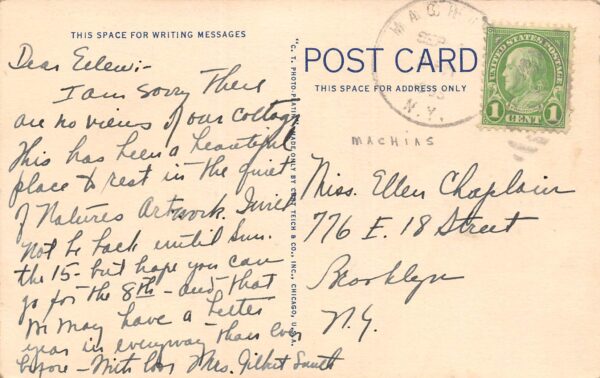 THIS SPACE FOR WRITING MESSAGES
Dear Ellen:-
I am sorry there
are no views of our cottage
This has been a beautiful
place to rest in the quiet
of Natures Artwork. I will
not be back until Sun.
the 15- but hope you can
go for the 8th - and that
we may have a better
year in everyway than ever
before - With love Mrs. Gilbert Smith
"C. T. PHOTO-PLATIN" MADE ONLY BY CURT TEICH & CO., INC., CHICAGO, U.S.A.
POST CARD
THIS SPACE FOR ADDRESS ONLY
MACHIAS
SEP
N.Y.
UNITED STATES POSTAGE
1 CENT 1
MACHIAS
Miss. Ellen Chaplain
776 E. 18 Street
Brooklyn
N.Y.